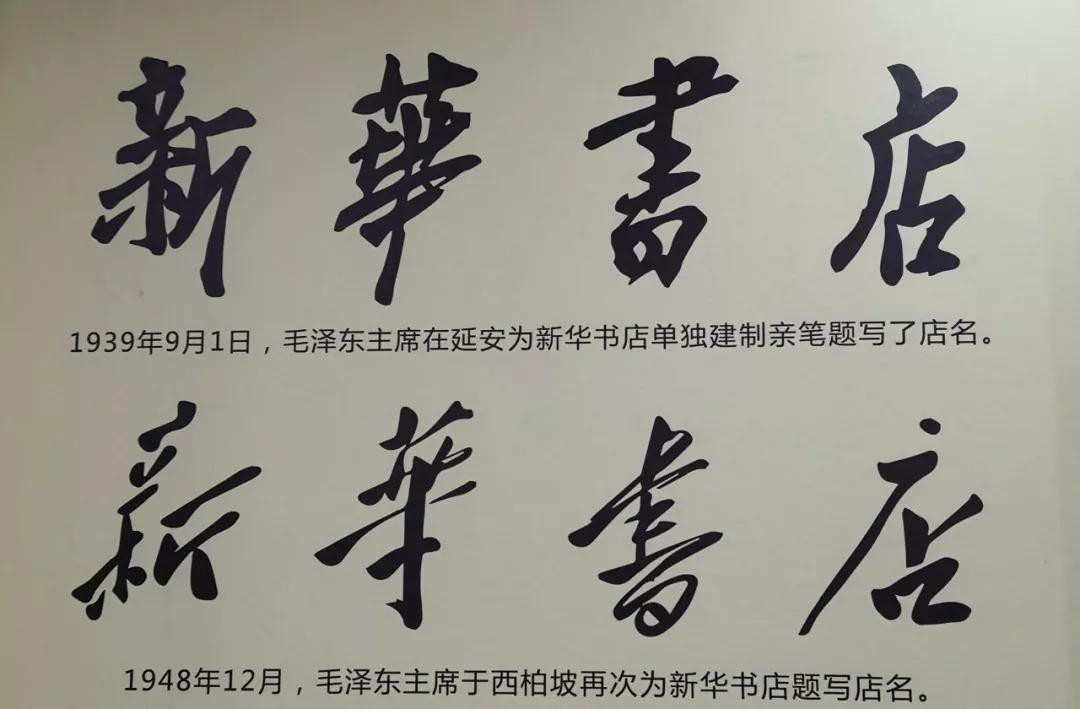 新華書店
1939年9月1日，毛泽东主席在延安为新华书店单独建制亲笔题写了店名。
新華書店
1948年12月，毛泽东主席于西柏坡再次为新华书店题写店名。